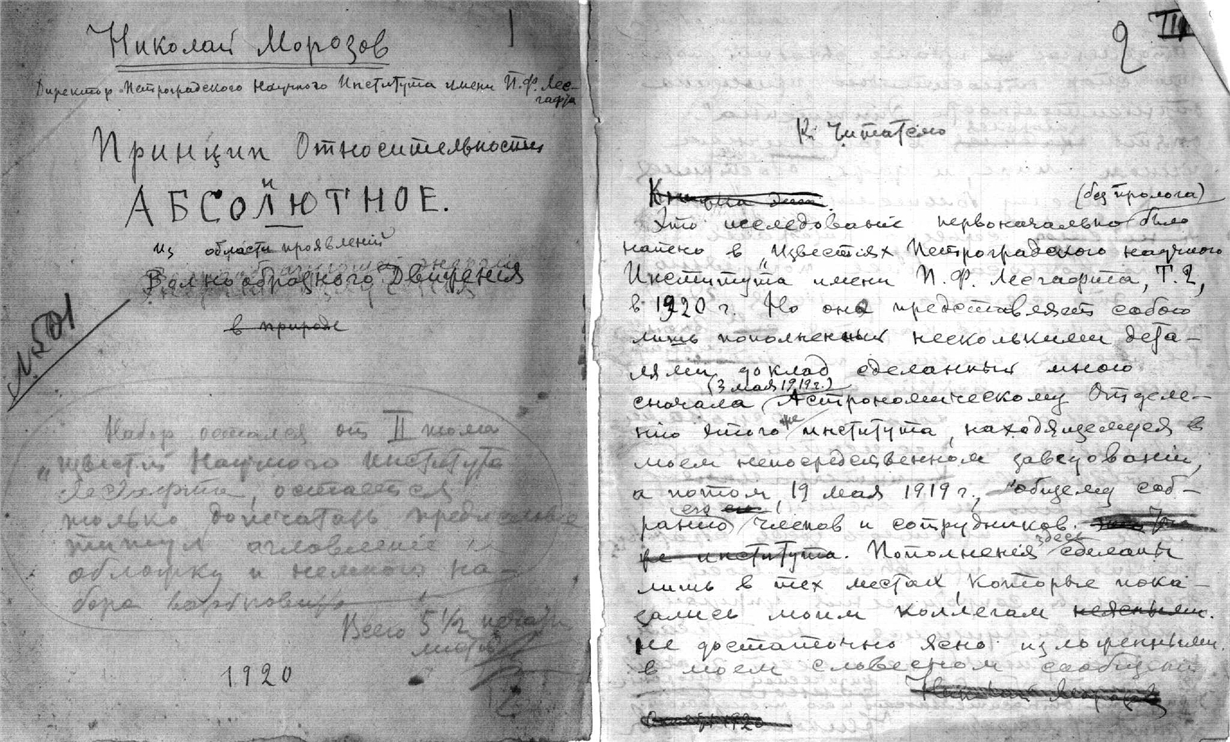 1
Николай Морозов
Директор Петроградского Научного Института имени П.Ф. Лес-
гафта
Принцип Относительности
и
АБСОЛЮТНОЕ.
из области проявлений
Волнообразного Движения
в природе
N. 501
Набор остался от II тома
"Известий Научного Института
Лесгафта, остается
только допечатать предисловие
титул оглавление
обложку и немного на-
бора
Всего 5 1/2 печатн
листов
1920
2
III
К читателю
(без пролога)
Это исследование первоначально было
напечатано в "Известиях Петроградского научного
Института имени П.Ф. Лесгафта, Т. 2,
в 1920 г. Но оно представляет собою
лишь пополненный несколькими дета-
лями доклад сделанный мною
(3 мая 1919 г.)
сначала Астрономическому Отделе-
нию этого же института, находящемуся в
моем непосредственном заведовании,
а потом, 19 мая 1919 г., общему соб-
ранию членов и сотрудников
института. Пополнения здесь сделаны
лишь в тех местах, которые пока-
зались моим коллегам неясными.
не достаточно ясно изложенными
в моем словесном сообщении
Николай Морозов
1920